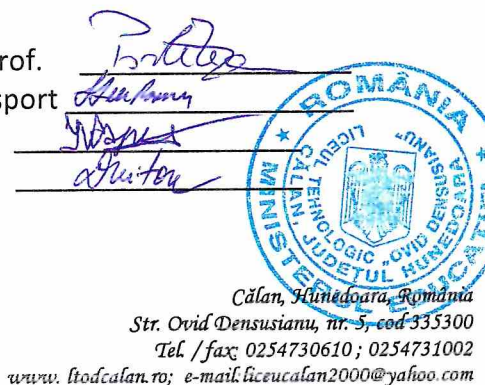 rof.
sport
ROMÂNIA
MINISTERUL EDUCAȚI
LICEUL TEHNOLOGIC „OVID DENSUSIANU”
CĂLAN, JUDEȚUL HUNEDOARA
Călan, Hunedoara, România
Str. Ovid Densusianu, nr. 5, cod 335300
Tel. /fax: 0254730610 ; 0254731002
www. ltodcalan.ro; e-mail:liceucalan2000@yahoo.com